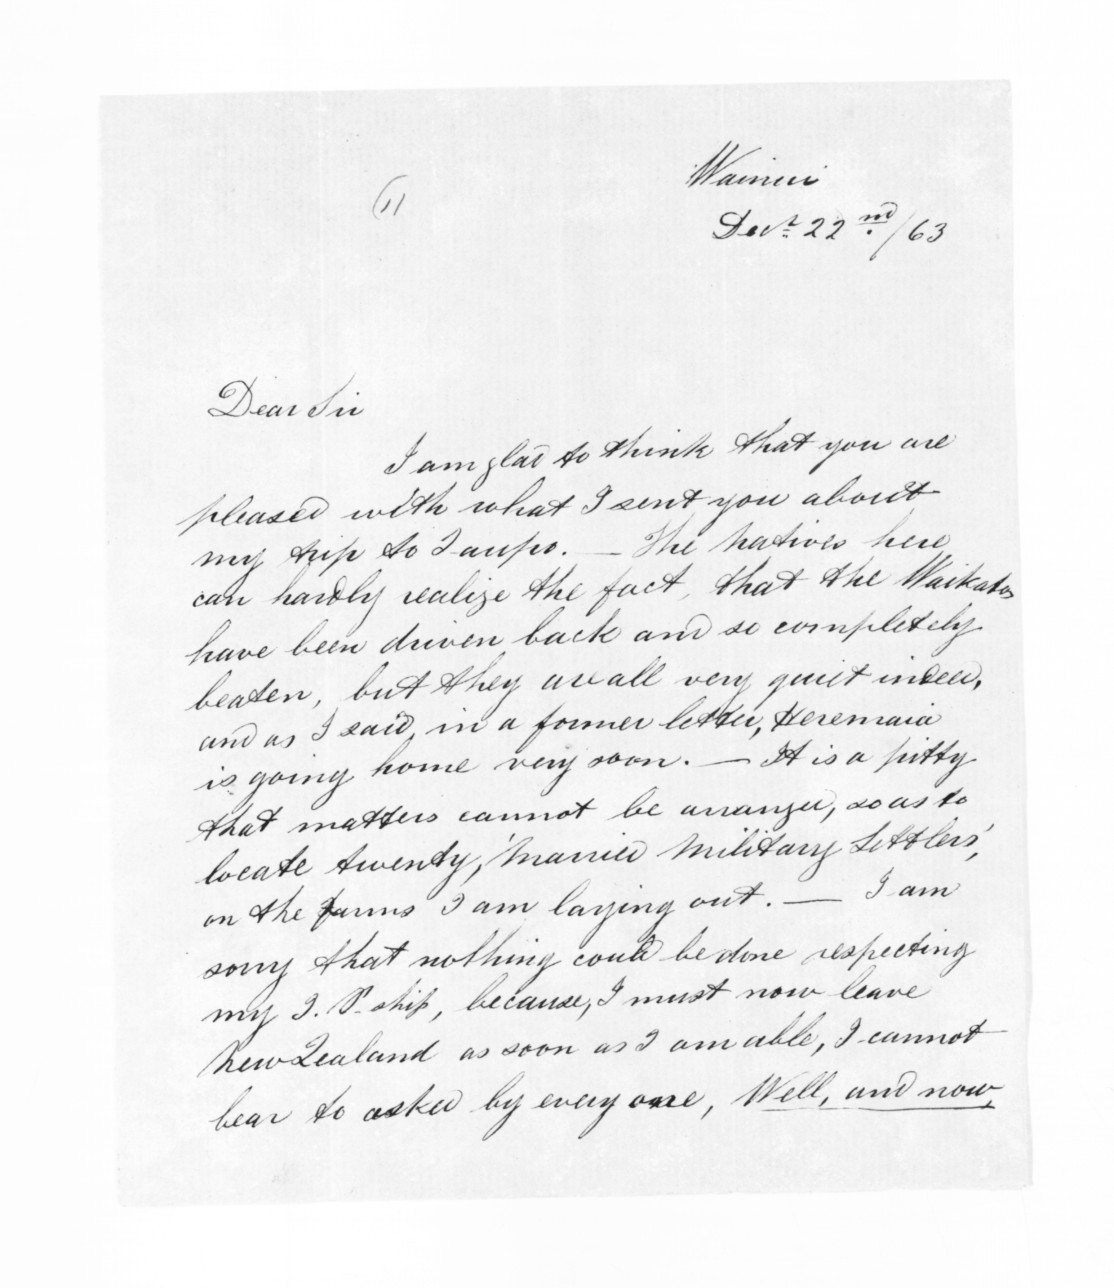 (11
Wainui
Decr. 22nd./63
Dear Sir
I am glad to think that you are
pleased with what I sent you about
my trip to Taupo. — The Natives here,
can hardly realize the fact, that the Waikatos
have been driven back and so completely
beaten, but they are all very quiet indeed,
and as I said, in a former letter, Heremaia
is going home very soon. — It is a pitty
that matters cannot be arranged, so as to
locate twenty, 'Married Military Settlers',
on the farms I am laying out. — I am
sorry that nothing could be done respecting
my J. P. ship, because, I must now leave
New Zealand as soon as I am able, I cannot
bear to asked by every one, Well, and now,